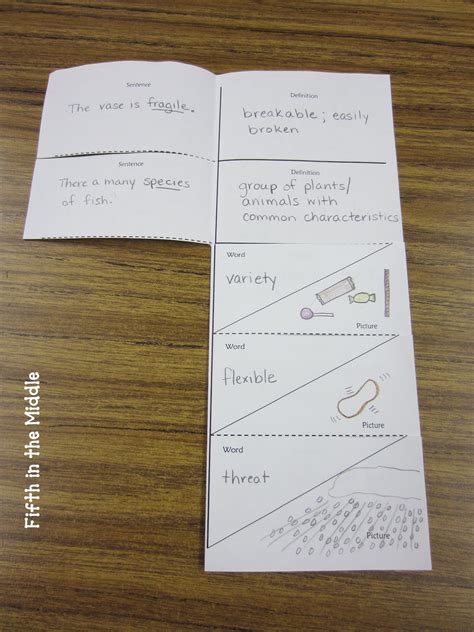 Sentence
The vase is fragile.
Definition
breakable; easily
broken
Sentence
There a many species
of fish.
Definition
group of plants/
animals with
common characteristics
Word
variety
Picture
Word
flexible
Picture
Word
threat
Picture
Fifth in the Middle